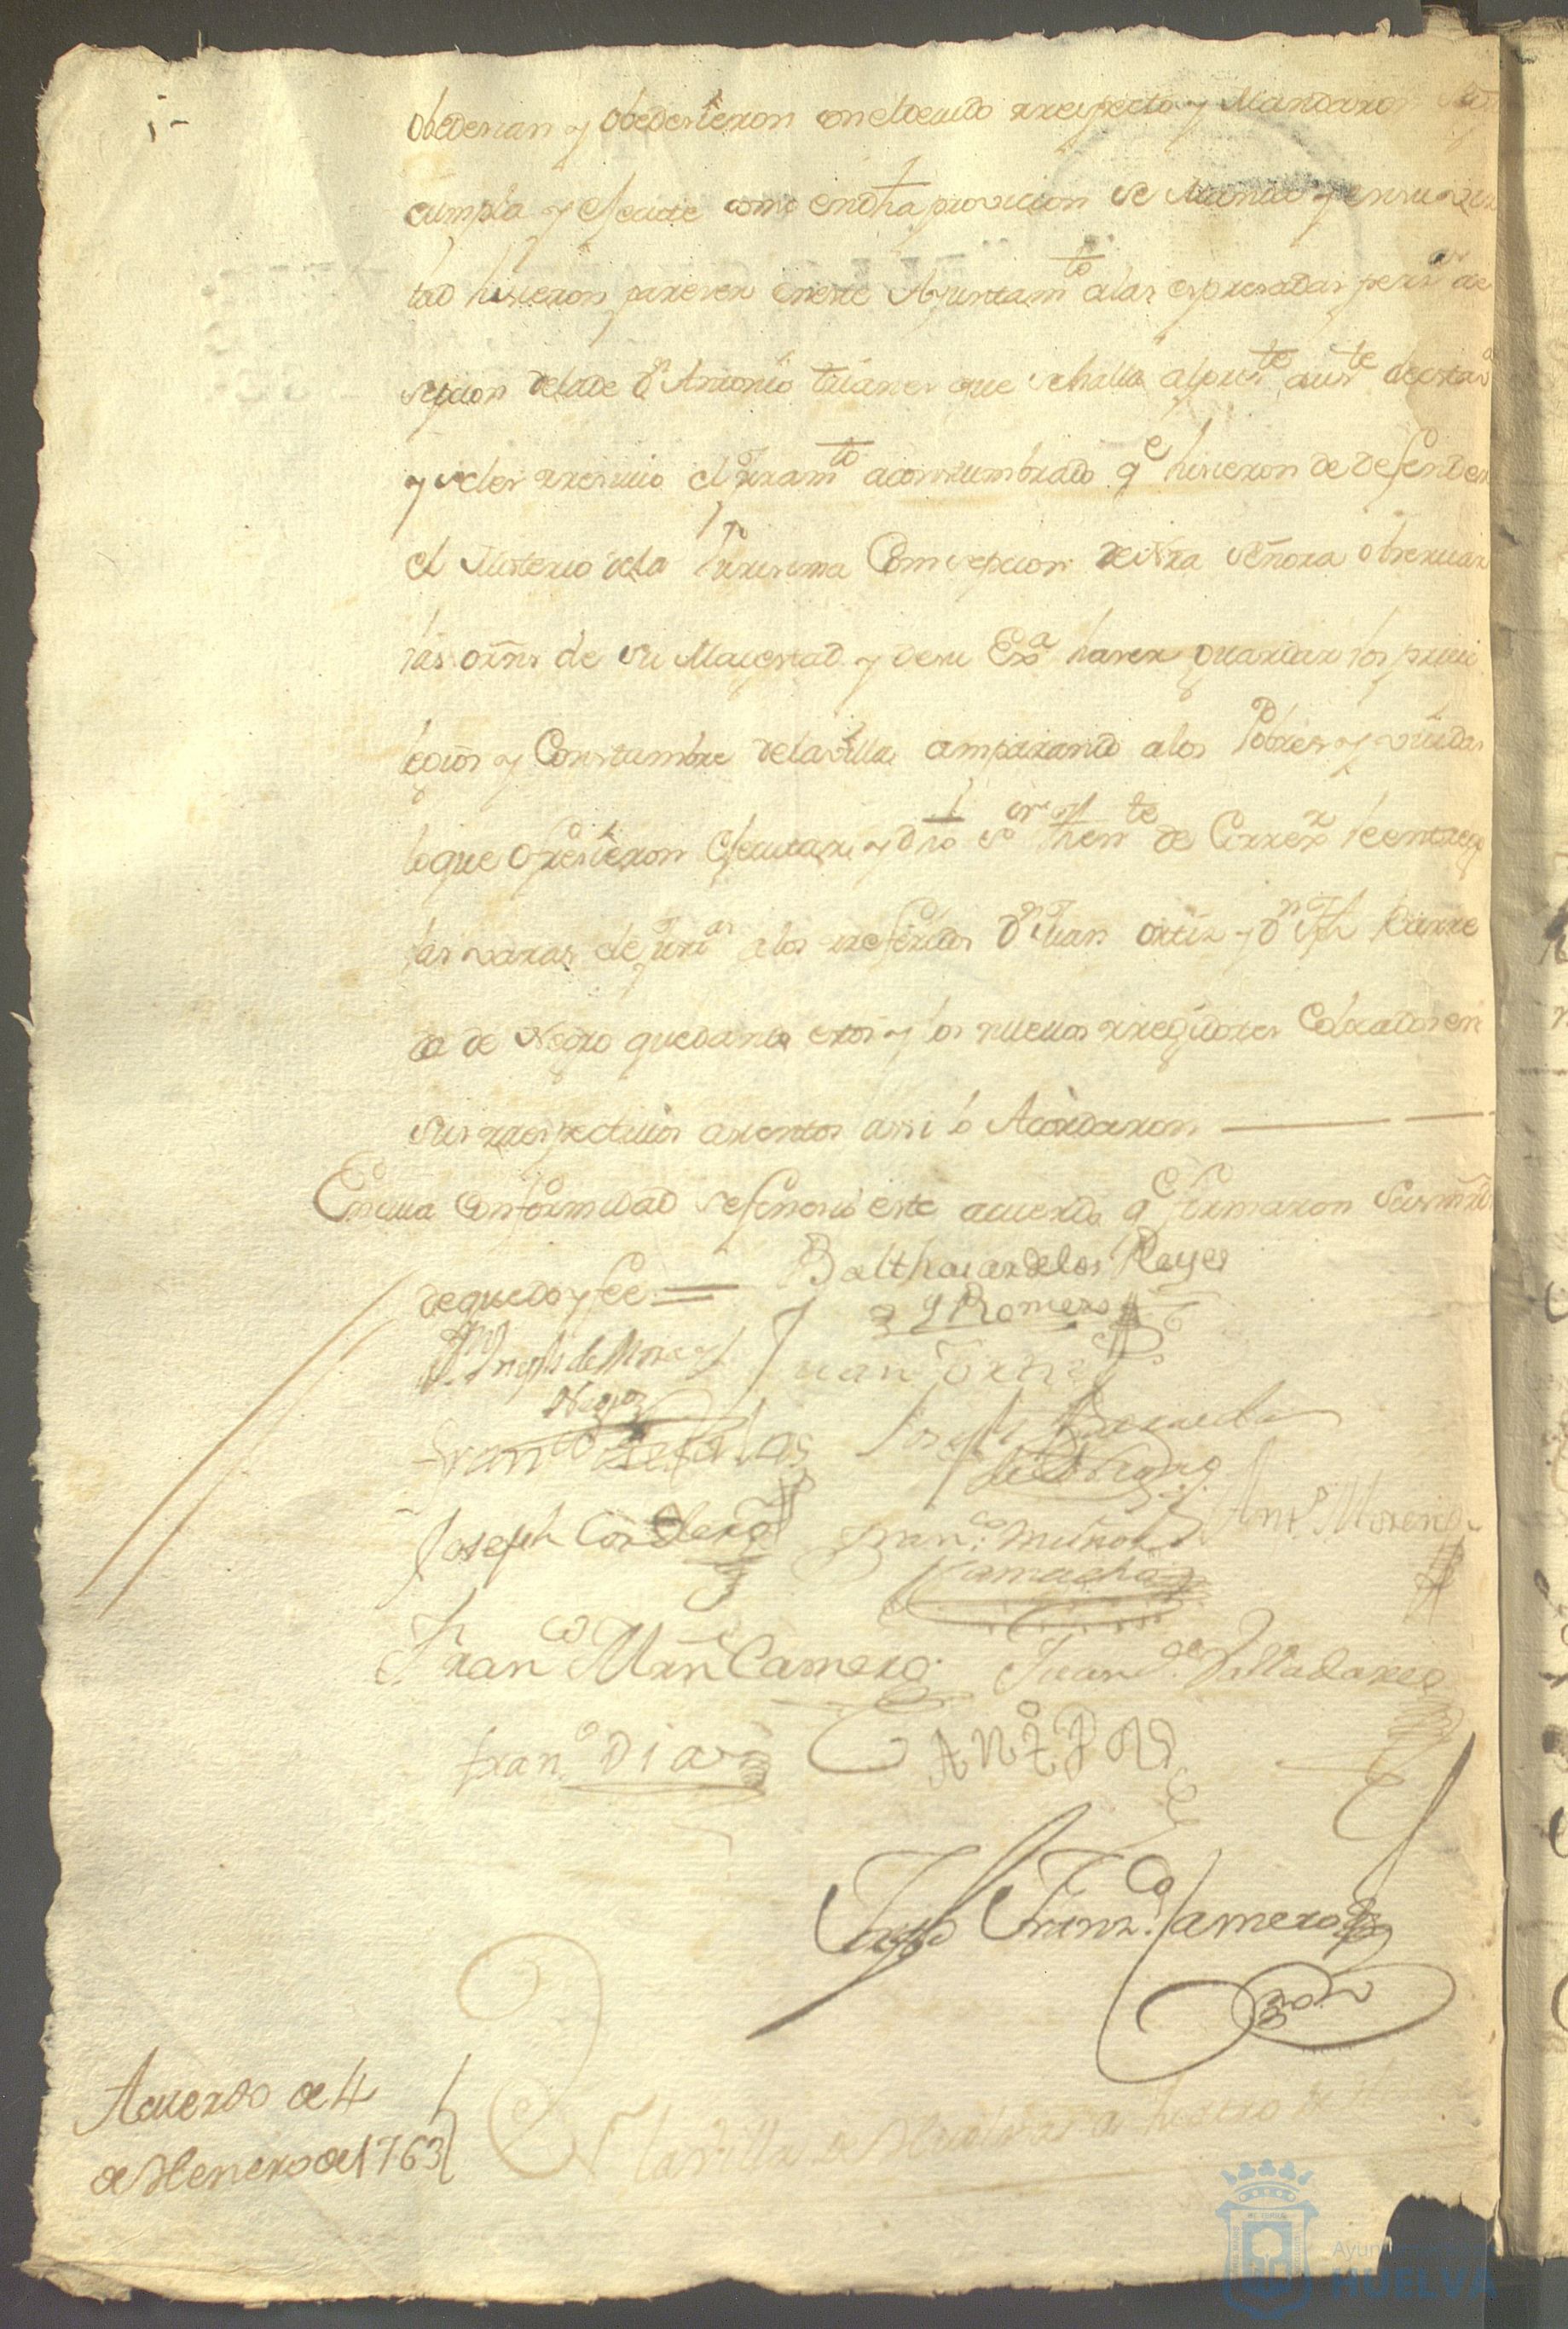 obedesian y obedesieron con el deuido rrespecto y Mandaron se
cumpla y efecute como en dha provicion se Manda y en su vir
tud hisieron pareser en este Ayuntamto a las expresadas persas ae
sepcion de la de Dn Antonio que se halla al preste auste de esta va
y se les rresiuio el juramto acostumbrado qe hisieron de defender
el Misterio de la Purisima Comsepcion de Nra Señora obseruar
las orns de su Magestad y de su Exa haser guardar los priui
legios y Constumbre de la villa amparando a los Pobres y viudas
lo que ofresieron efecutar y dho sor thente de Correxr le entrego
las varas de justas a los referidos Dn Juan ortiz y Dn Jph Barre
da de Negro quedando estos y los nueuos rregidores Colocados en
sus rrespectiuos asentos assi lo Acordaron
En cuia Conformidad se fenesio este acuerdo qe firmaron sus mrds
de que doy fee =
Balthasar de los Reyes
y Romero
Juan Ortiz
Negro
Franco de
Joseph Barreda
de Negro
Joseph Cordero
Franco Muños
Camacho
Anto Moreno
Franco Mrn Camero
Juan de Valladares
Frano Dias
ANto
Franco Camero
Acuerdo de 4
de Henero de 1763
En la villa de Huelva a
Ayun
HUELVA